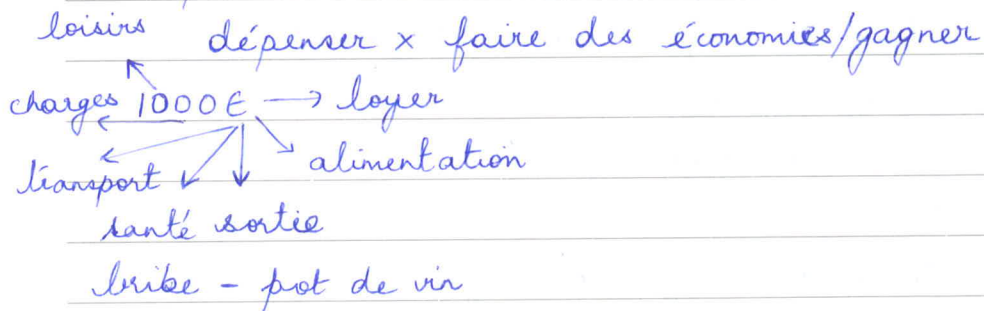 loisirs dépenser x faire des économies/gagner
charges 1000€ → loyer
transport alimentation
santé sortie
bribe - pot de vin